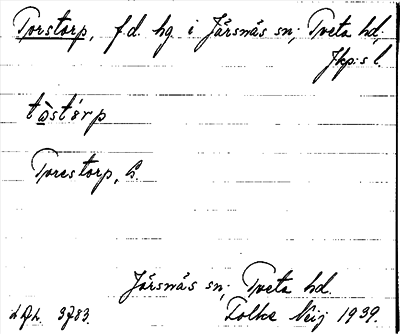 Torstorp, f.d. hg. i Järsnäs sn; Tveta hd;
Jkp:s l.
tòstórp
Torestorp, h.
Järsnäs sn; Tveta hd.
Folke Neij 1939.
3783.